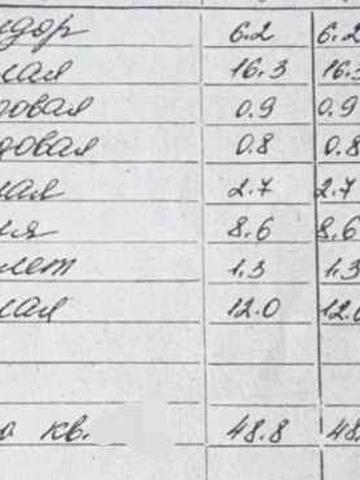 идор 6.2 6.2
лая 16.3 16.3
довая 0.9 0.9
довая 0.8 0.8
ная 2.7 2.7
ня 8.6 8.6
лет 1.3 1.3
лая 12.0 12.0
о кв. 48.8 48.